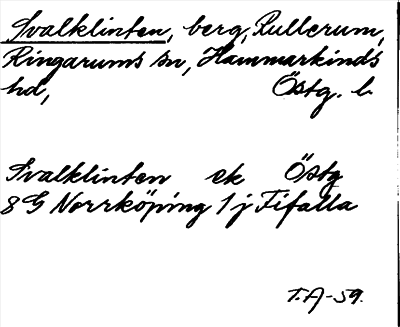 Svalklinten, berg, Rullerum,
Ringarums sn, Hammarkinds
hd, Östg. l.
Svalklinten ek Östg
8G Norrköping 1j Fifalla
T.A-59.